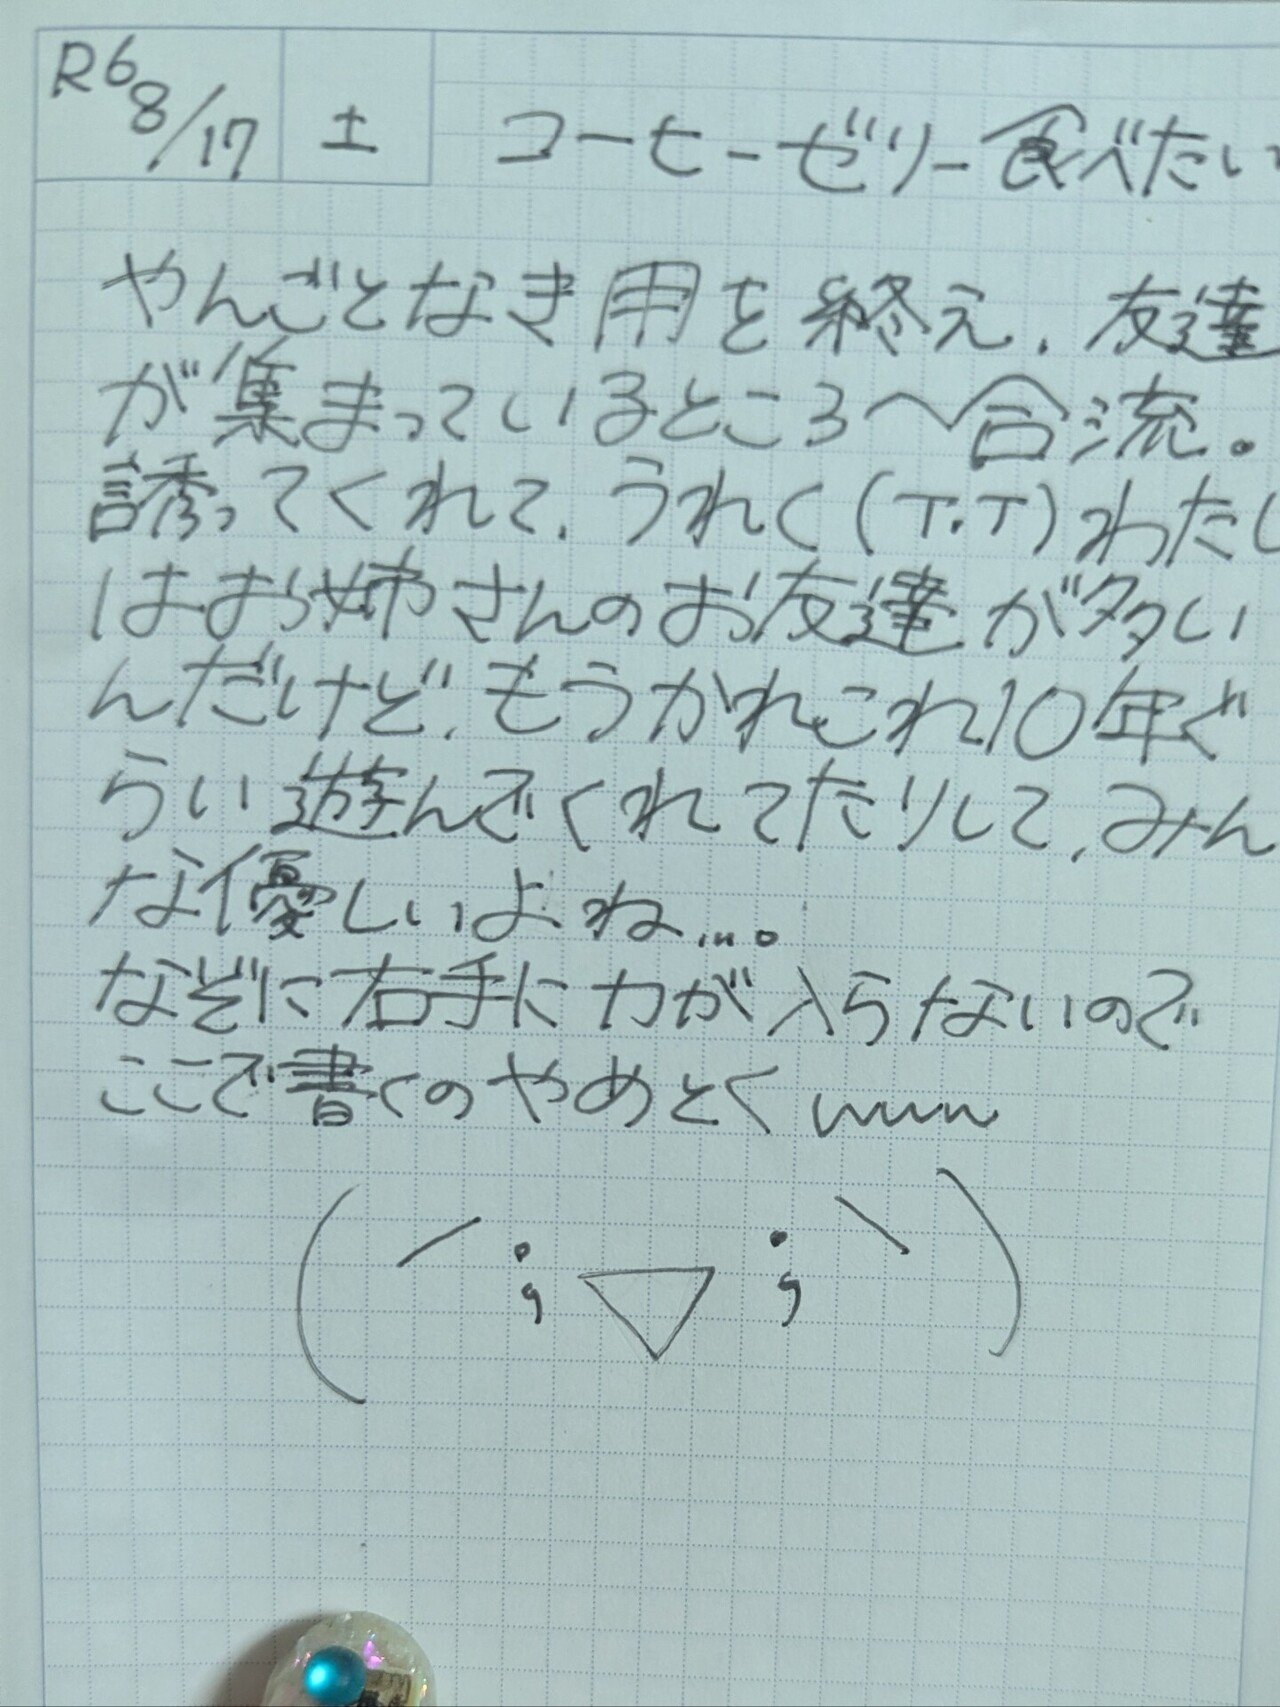 R6 8/17 土 コーヒーゼリー食べたい
やんごとなき用を終え、友達
が集まっているところへ合流。
誘ってくれて、うれく(T.T)わたし
はお姉さんのお友達が多い
んだけど、もうかれこれ10年ぐ
らい遊んでくれてたりして、みん
な優しいよね...。
なぞに右手に力が入らないので
ここで書くのやめとくwww
(´;▽;`)